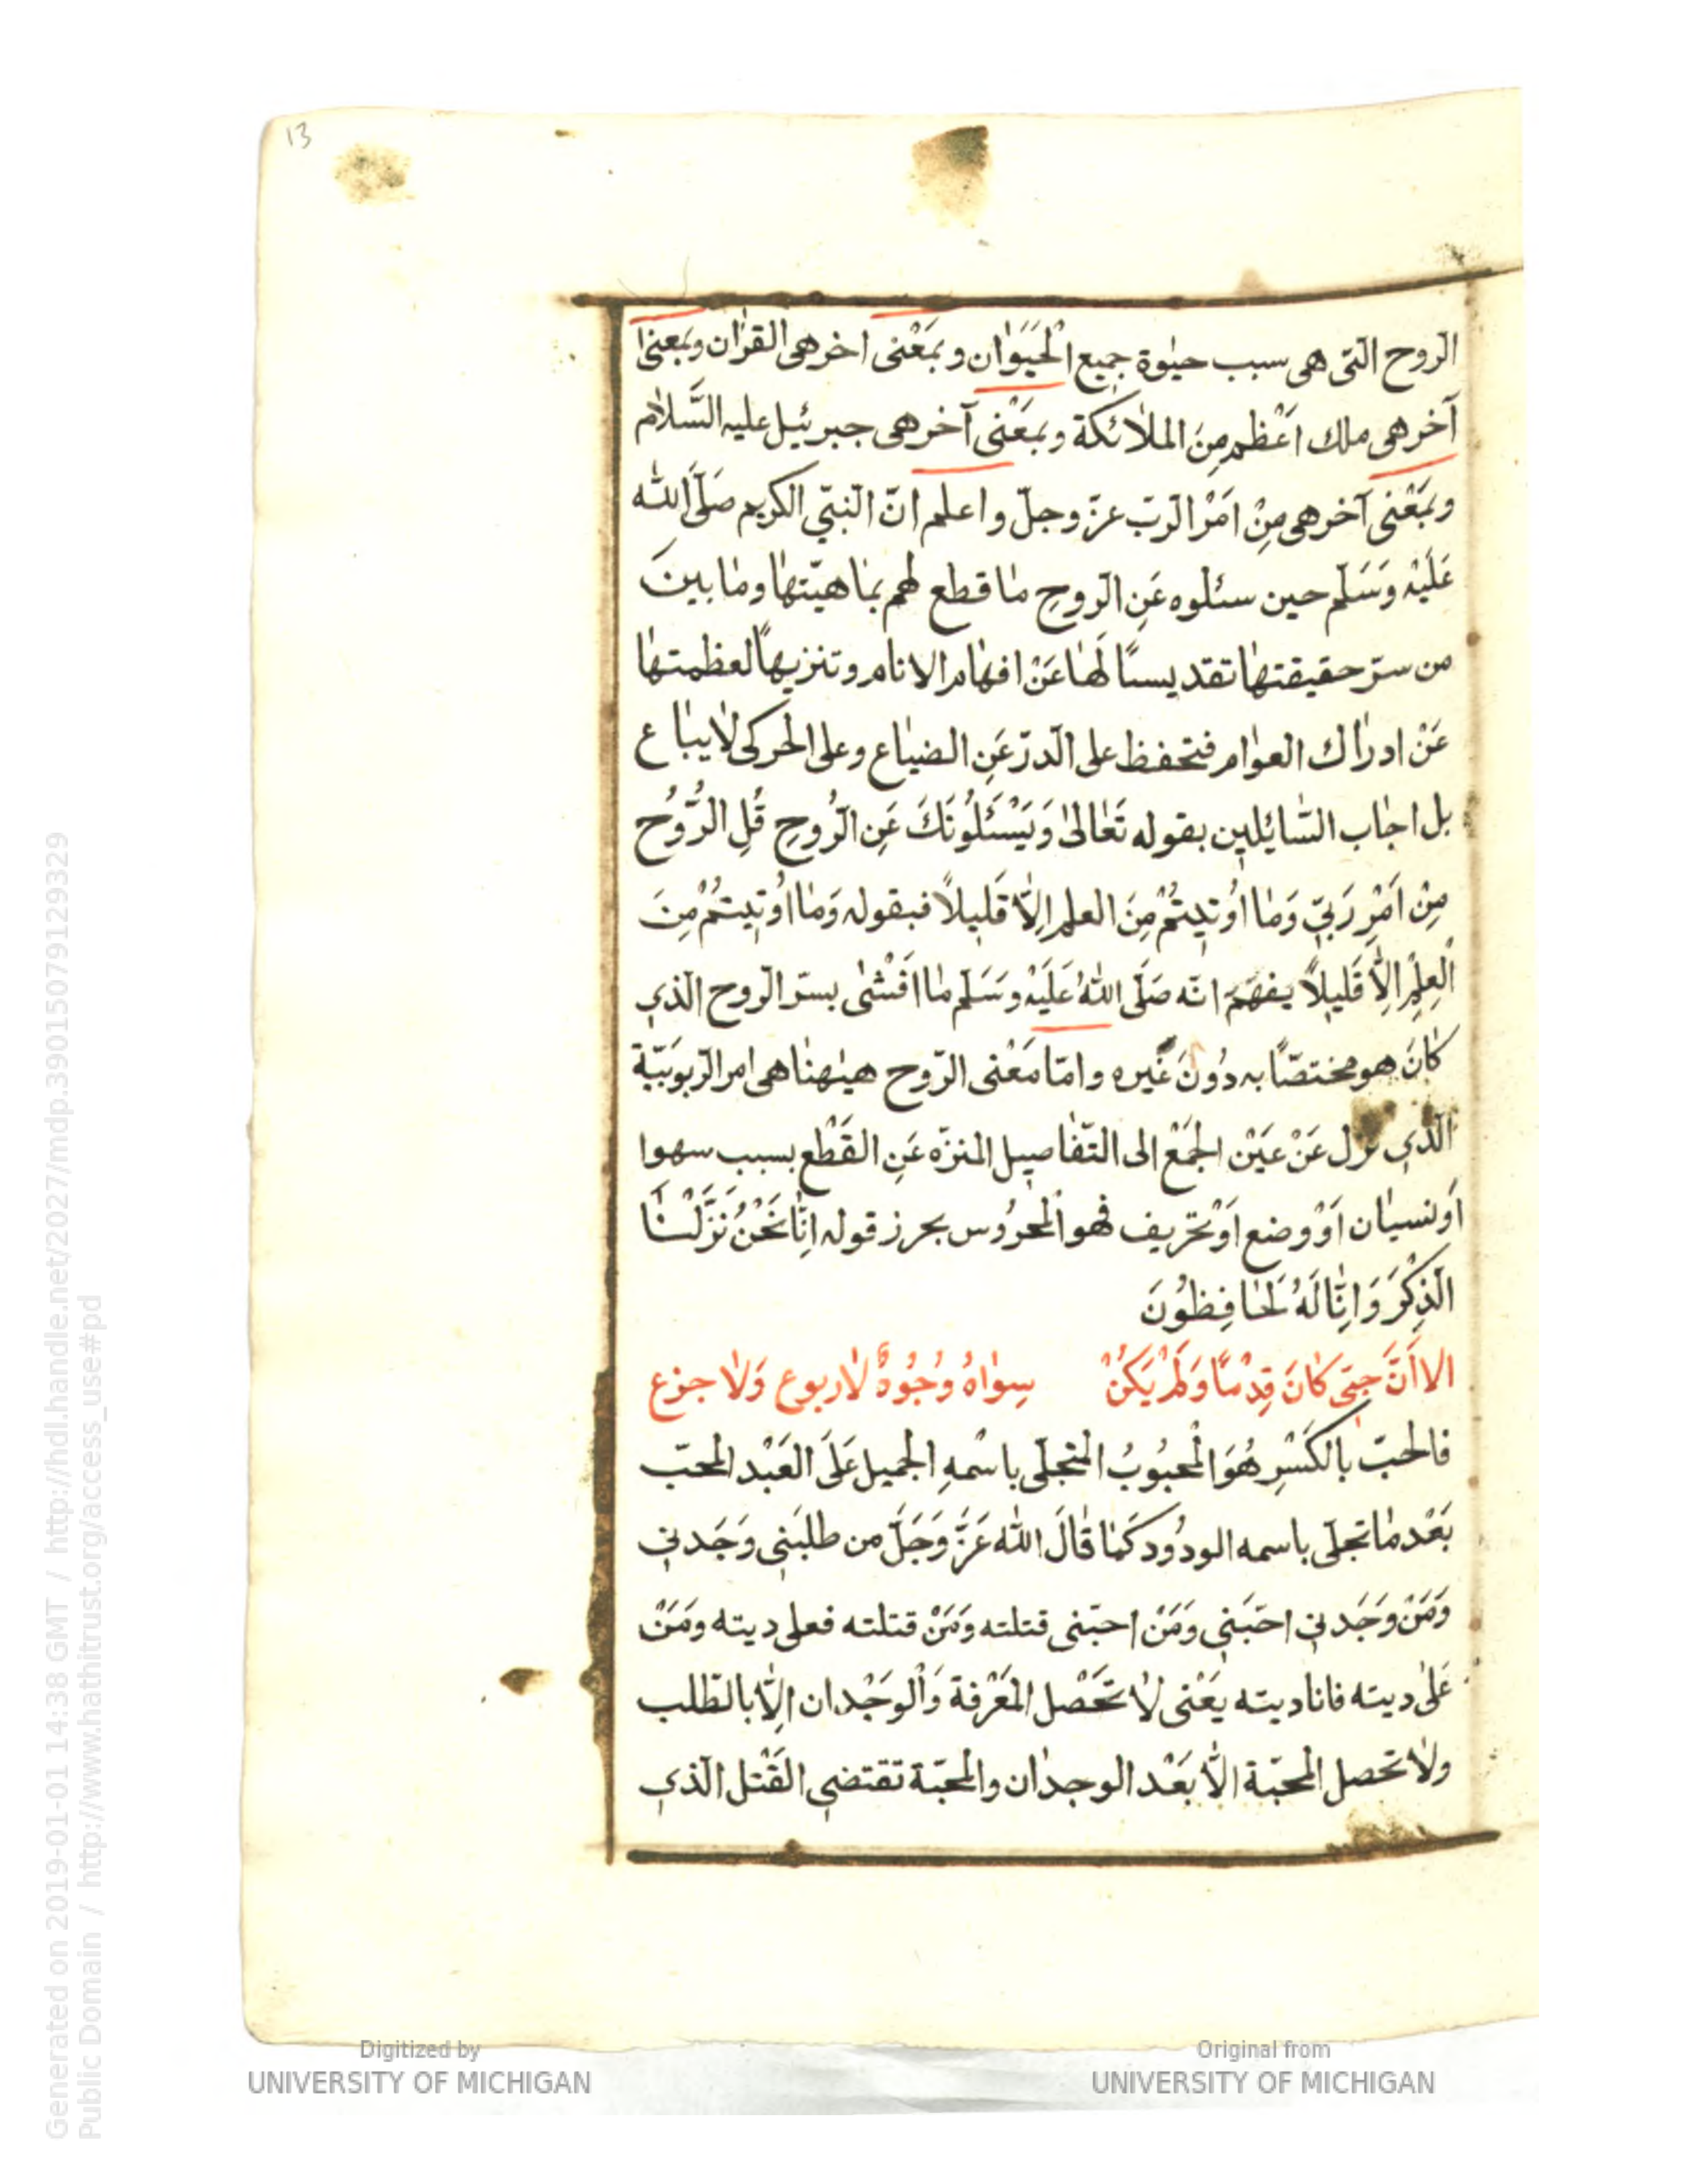 13
الروح التى هى سبب حيٰوة جميع الْحَيَوٰان وبمَعْنى اخر هى القرٰان وبمعنىٰ
آخر هى ملك اَعْظم مِنَ الملاٰئكة وبمَعْنى آخر هى جبرئيل عليه السَّلاٰم
وبمَعْنى آخر هى مِنْ امَرْ الرّبّ عزّ وجلّ واعلم انّ النبّي الكريم صَلَّى الله
عَلَيْهِ وَسَلَّم حين سئلوه عَنِ الرّوحِ مٰا قطع لهم بمٰاهيّتهٰا ومٰا بينَ
من سرّ حقيقتهٰا تقديسًا لَهٰا عَنْ افهٰام الانام وتنزيهاً لعظمتهٰا
عَنْ ادرٰاك العوٰام فتحفظ على الدرّ عَنِ الضيٰاع وعلى الحركى لاٰيبٰاع
بل اجٰاب السّٰائيلين بقوله تَعٰالىٰ وَيَسْئَلُونَكَ عَنِ الرُّوحِ قُلِ الرُّوُحُ
مِنْ اَمْرِ رَبّي وَمٰا اُوُتيٖتُمْ مِنَ العلم اِلاّٰ قَليٖلاً فبقوله وَمٰا اُوُتيٖتُمْ مِنَ
الْعِلِمْ اِلاّٰ قَليٖلاً يفهَم انّه صَلَّى اللهُ عَلَيْهِ وَسَلَّم مٰا اَفْشٰى بسرّ الرّوح الذّي
كٰانَ هو مختصّاً به دُونَ غَيره وامّا مَعْنى الرّوح هيٰهنٰا هى امر الرّبوبَيّة
الّذي نزل عَنْ عَيْن الجمَعْ الى التّفٰاصيٖل المنزّه عَنِ القَطْع بسبب سهوا
اَو نسيٰان اَوْ وضع اَوْ تحَريف فهو المْحَرُوس بحرز قوله اِنّٰا نَحْنُ نَزَّلْنٰا
الّذِكْرَ وَاِنّٰا لَهُ لَحٰافِظُونَ
الا اَنَّ حِبّى كٰانَ قِدْمًا وَلَمْ يَكُنْ سِوٰاهُ وُجُوُهٌ لاٰ ربوع وَلاٰ جزع
فالحبّ بالكَسْرِ هُوَ المْحبُوبُ المتجلّى باسْمهِ الجميل عَلَى العَبْد المحبّ
بَعْد مٰا تجلّى باسمه الودُود كَمٰا قٰالَ اللّٰه عَزَّ وَجَلَّ من طلبَني وَجَدني
وَمَنْ وَجَدني احبَّني وَمَنْ احبّنى قتلته وَمَنْ قتلته فعلى ديته ومَنْ
عَلىٰ ديته فانا ديته يَعْنى لاٰ تَحَصْل المَعْرفة وَالْوَجْدان اِلاّٰ بالطّلب
ولاٰ تحصل المحبّة الاّٰ بَعْد الوجدٰان والمحبّة تقتضي القَتْل الّذي
Generated on 2019-01-01 14:38 GMT / http://hdl.handle.net/2027/mdp.39015079129329
Public Domain / http://www.hathitrust.org/access_use#pd
Digitized by
UNIVERSITY OF MICHIGAN
Original from
UNIVERSITY OF MICHIGAN